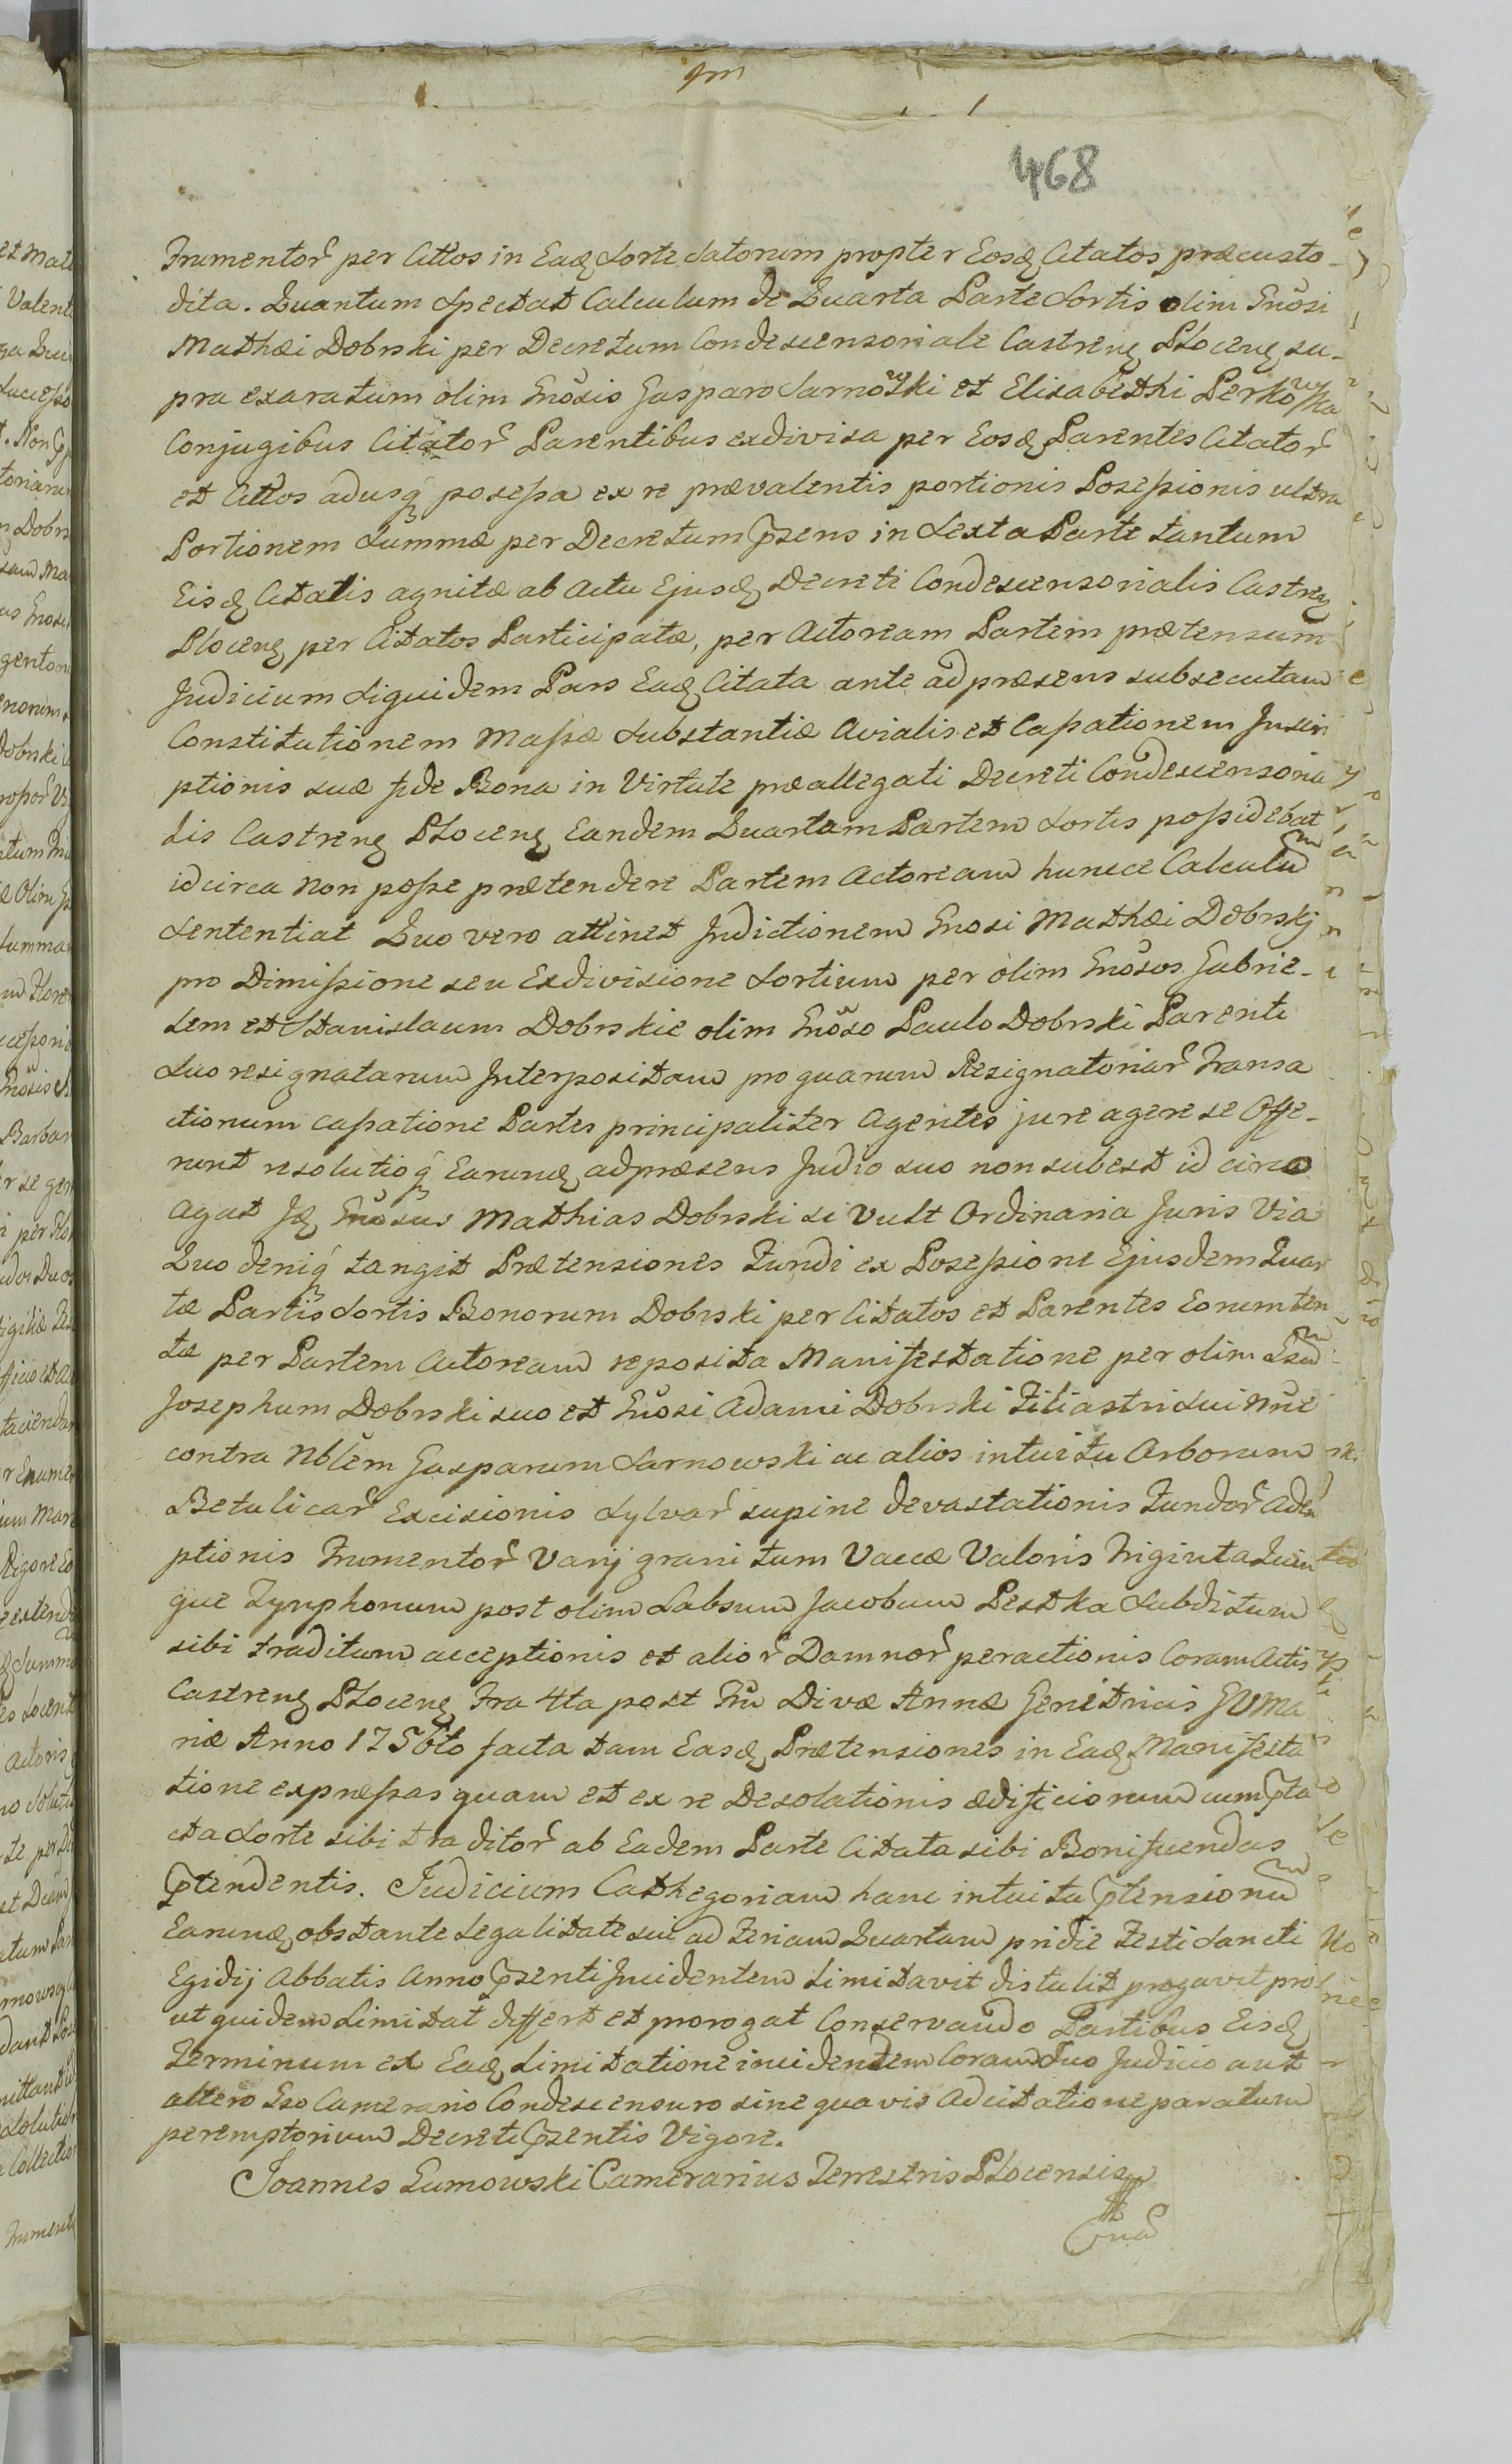 468
Frumentor̃ per Cittos in Eaq̨ Sorte Satorum propter Eosq̨ Citatos præcusto-
dita. Quantum Spectat Calculum de Quarta Parte Sortis olim Gnõsi
Mathæi Dobrski per Decretum Condescensoriale Castreñ Płoceñ su-
pra exaratum olim Gnõsis Gasparo Sarnowski et Elisabethi Perkowska
Conjugibus Citator̃ Parentibus exdivisa per Eosq̨ Parentes Citator̃
et Cittos adusq̨ possessa ex re prævalentis portionis Possessionis ultra
Portionem Summæ per Decretum p̃sens in Sexta Parte tantum
Eisq̨ Citatis agnitæ ab Actu Ejusq̨ Decreti Condescensorialis Castreñ
Płoceñ per Citatos Participatæ, per Actoream Partem prætensum
Judicium Siquidem Pars Eaq̨ Citata ante ad præsens subsecutam
Constitutionem Massæ Substantiæ Avialis et Cassationem Inscri
ptionis suæ sr̃de Bona in Virtute præallegati Decreti Condescensoria
lis Castreñ Płoceñ Eandem Quartam Partem Sortis possidebat
idcirca Non posse prætendere Partem Actoream huncce Calculũm
Sententiat Quo vero attinet Indictionem Gnosi Mathæi Dobrskj
pro Dimissione seu Exdivisione Sortium per olim Gnõsos Gabrie-
lem et Stanislaum Dobrskie olim Gnõso Paulo Dobrski Parenti
Suo resignatarum Interpositam pro quarum Resignatoriar̃ Transa
ctionum cassatione Partes principaliter Agentes jure agere se Offe-
runt resolutioq̨ Earumq̨ ad præsens Judio suo non subest id circo
agat Jq̨ Gnosus Mathias Dobrski si Vult Ordinaria Juris Via
Quo deniq̨ tangit Prætensiones Fundi ex Possessione Ejusdem Quar
tæ Partis Sortis Bonorum Dobrski per Citatos et Parentes Eorum ten
tæ per Partem Actoream reposita Manifestatione per olim
Josephum Dobrski suo et Gnõsi Adami Dobrski Filiastri Sui Nñe
contra Nblẽm Gasparum Sarnowski ac alios intuitu Arborum
Betulicar̃ Excisionis Sylvar̃ supine devastationis Fundor̃ Adem
ptionis Frumentor̃ Varij grani tum Vaccæ Valoris Triginta Quin
que Tynphonum post olim Labsum Jacobum Pestka Subditum
sibi traditum acceptionis et alior̃ Damnor̃ peractionis Coram Actis
Castreñ Płoceñ Fra 4ta post Fm̃ Divæ Annæ Genitricis GVMa
riæ Anno 1756to facta tam Easq̨ Prætensiones in Eaq̨ Manifesta
tione expressas quam et ex re Desolationis ædificiorum cum p̃ta
cta Sorte sibi traditor̃ ab Eadem Parte Citata sibi Bonificendas
p̃tendentis. Judicium Cathegoriam hanc intuitu p̃tensionũm
Earumq̨ obstante Legalitate sui ad Feriam Quartam pridie Festi Sancti
Egidij Abbatis Anno p̃senti Incidentem Limitavit distulit progavit pro
ut quidem Limitat differt et prorogat Conservando Partibus Eisq̨
Terminum ex Eaq̨ Limitatione incidentem Coram Suo Judicio aut
altero Camerario Condescensuro sine quavis Adcitatione paratum
peremptorium Decreti p̃sentis Vigore.
Joannes Gumowski Camerarius Terrestris Płocensis